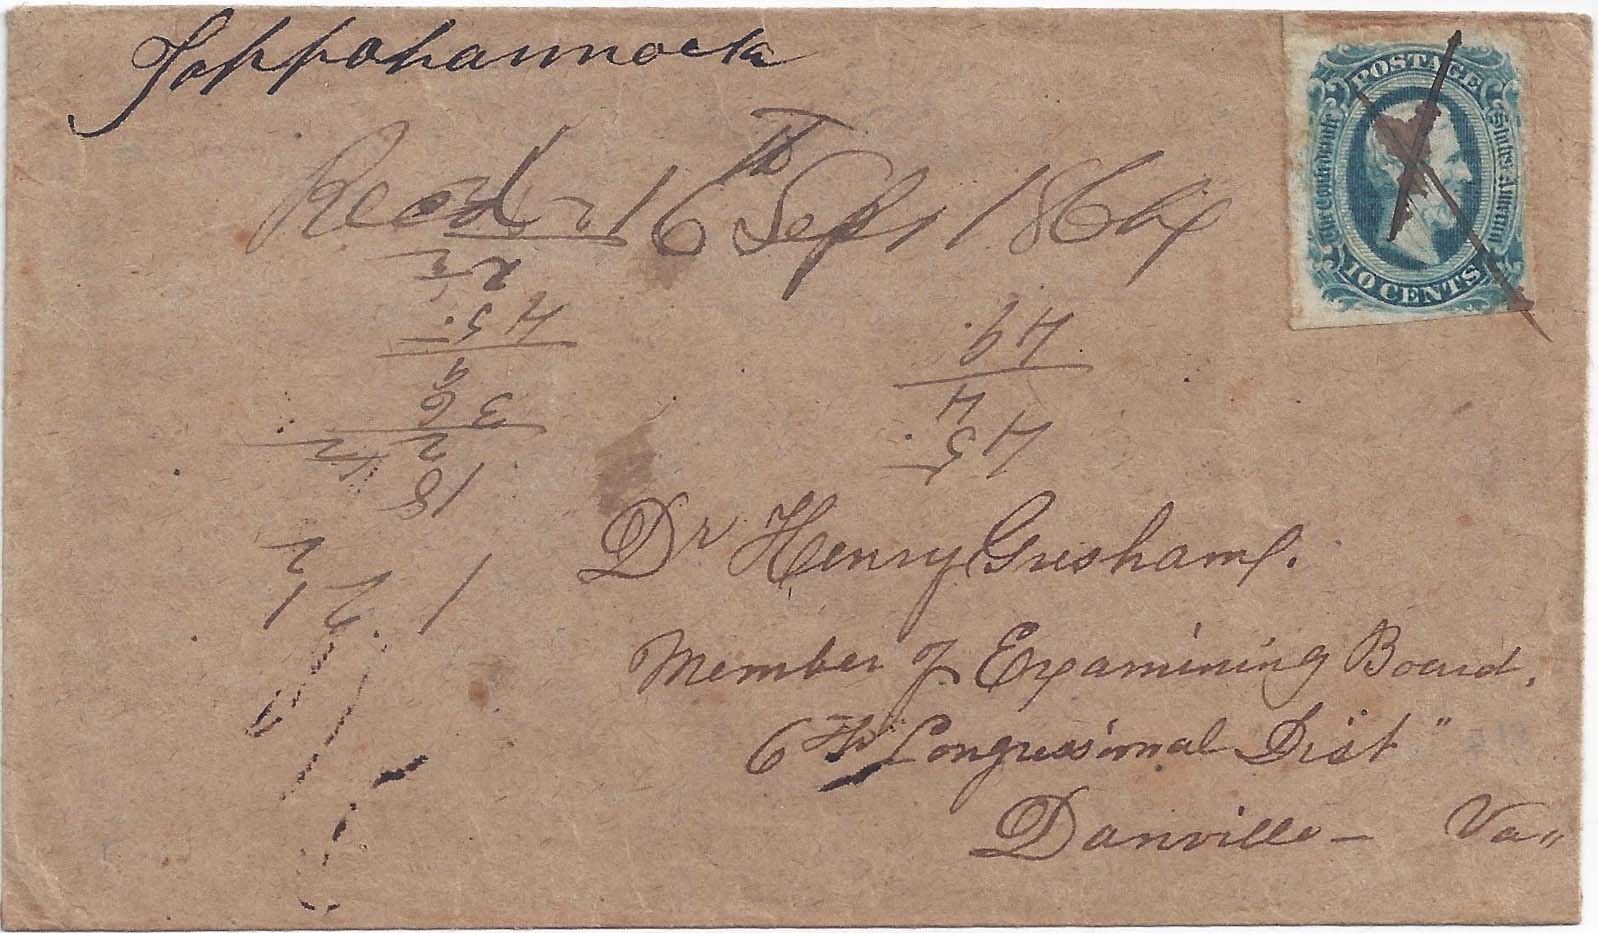 Tappahannock
Recd 16th Sept 1864
POSTAGE
The Confederate States America
10 CENTS
45
49
9
4
36
45
2
18
Dr Henry Gresham.
Member of Examining Board,
6th Congressional Dist"
Danville - Va"